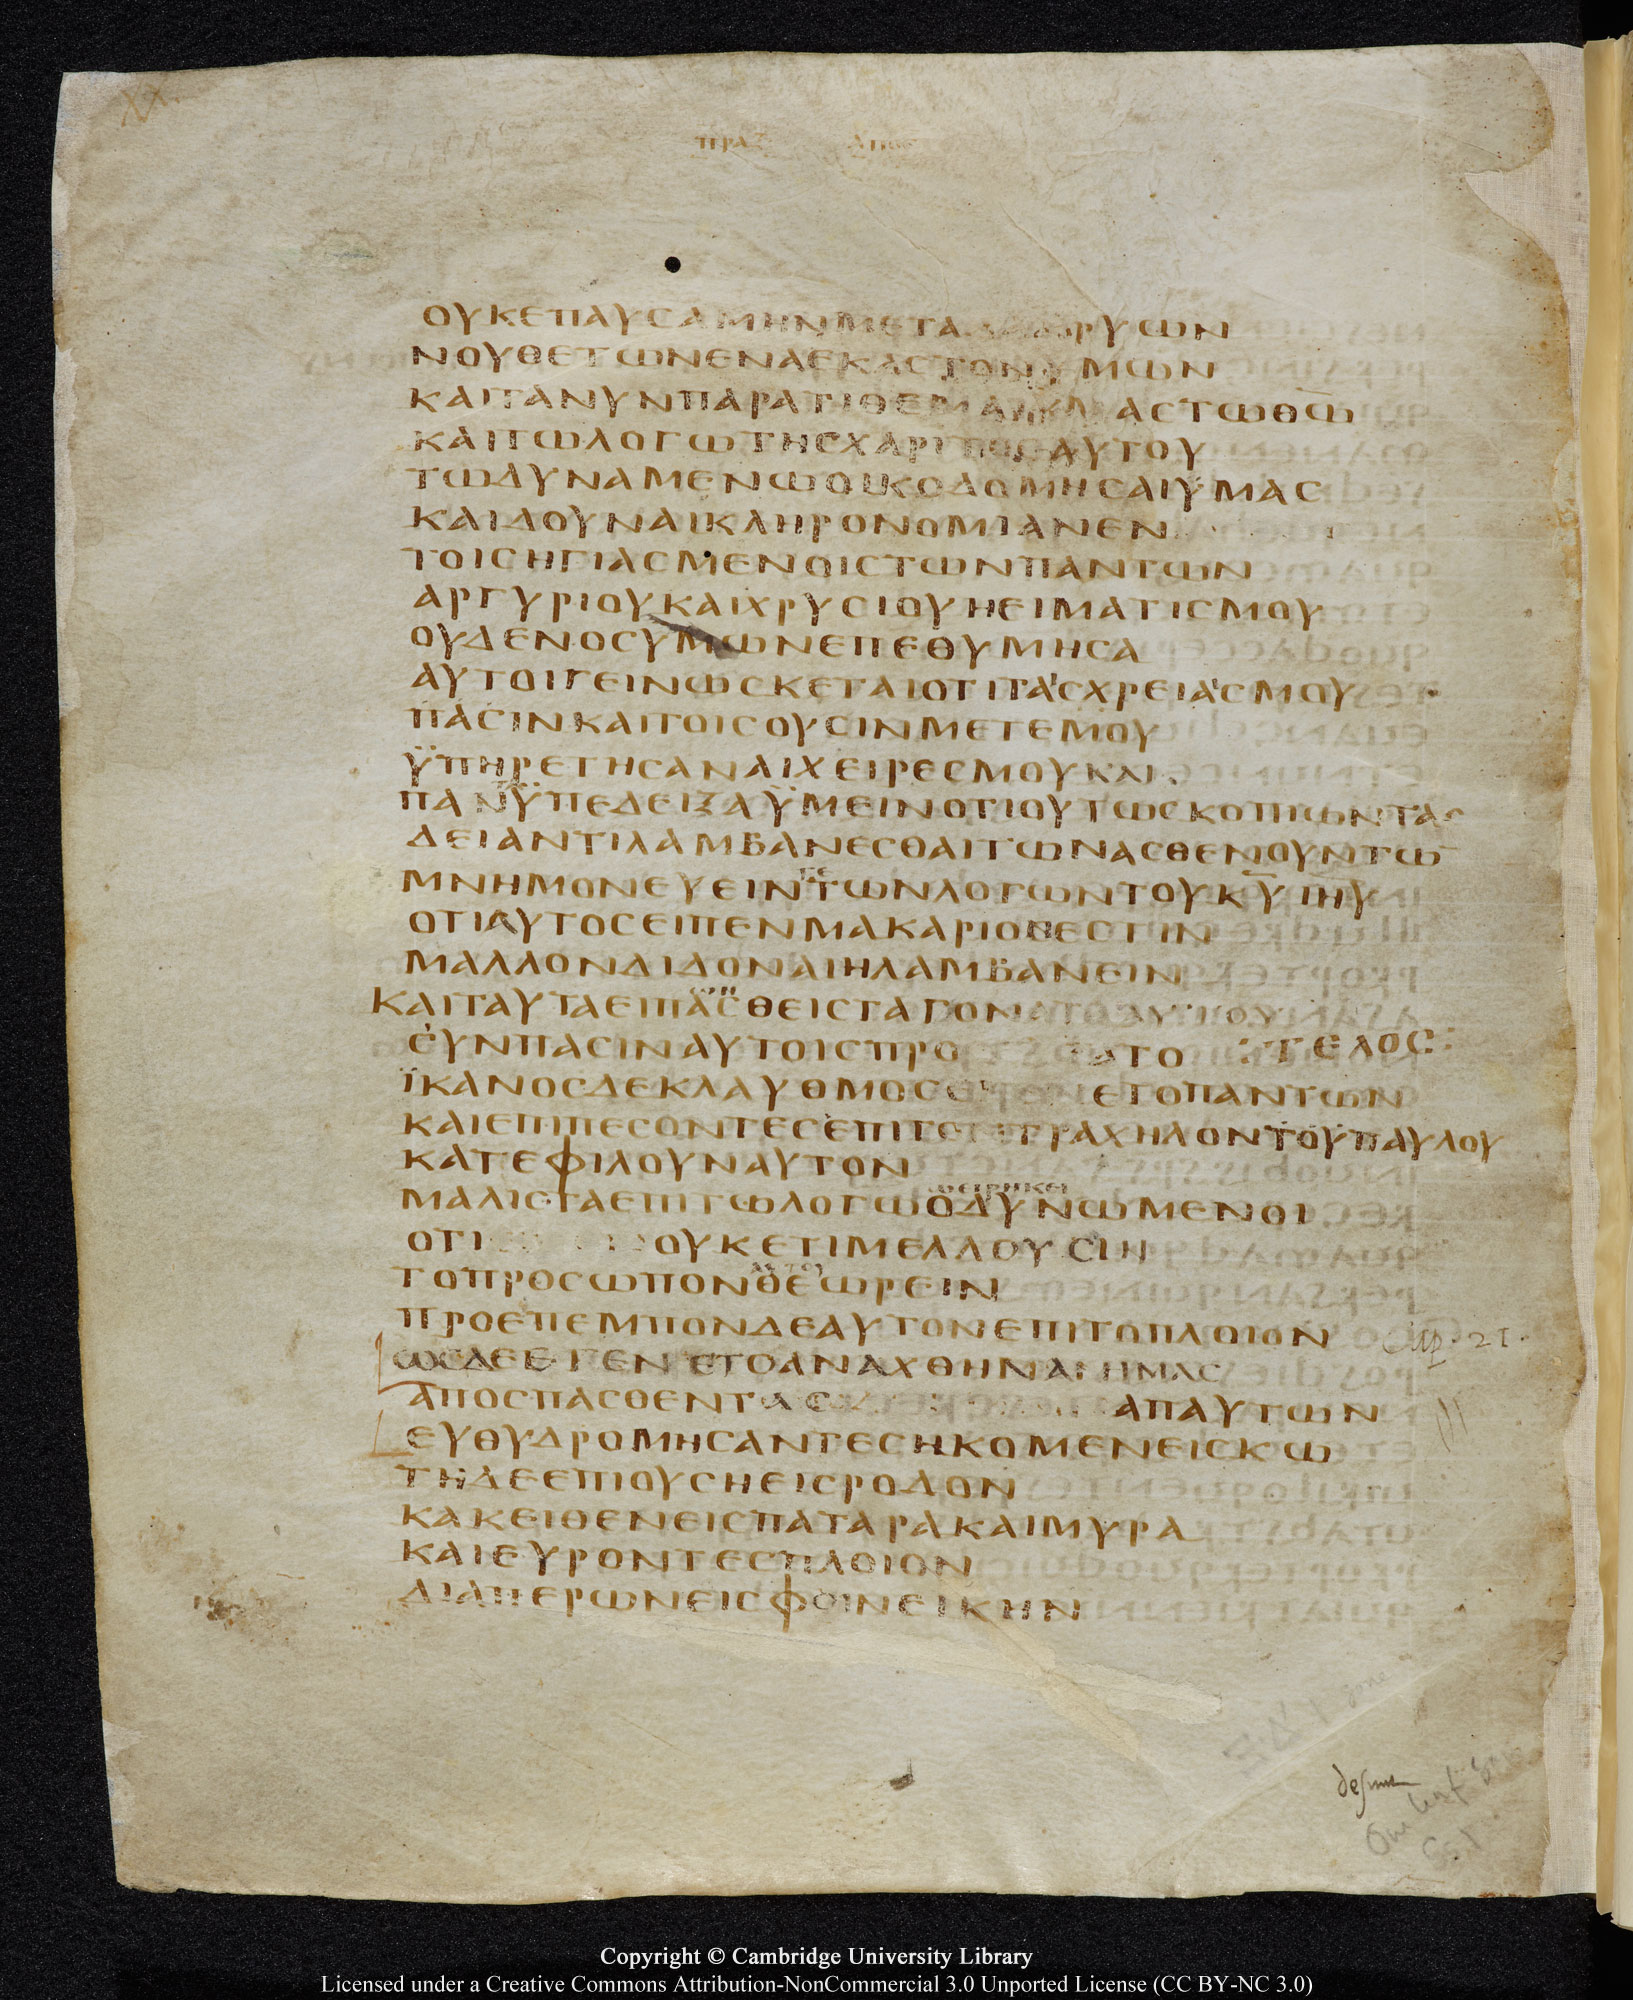 ΠΡΑΞ ΑΠΟΣΤ
ΟΥΚΕΠΑΥϹΑΜΗΝΜΕΤΑΔΑΚΡΥΩΝ
ΝΟΥΘΕΤΩΝΕΝΑΕΚΑϹΤΟΝΥΜΩΝ
ΚΑΙΤΑΝΥΝΠΑΡΑΤΙΘΕΜΑΙΥΜΑϹΤΩΘΩ
ΚΑΙΤΩΛΟΓΩΤΗϹΧΑΡΙΤΟϹΑΥΤΟΥ
ΤΩΔΥΝΑΜΕΝΩΟΙΚΟΔΟΜΗϹΑΙΥΜΑϹ
ΚΑΙΔΟΥΝΑΙΚΛΗΡΟΝΟΜΙΑΝΕΝ
ΤΟΙϹΗΓΙΑϹΜΕΝΟΙϹΤΩΝΠΑΝΤΩΝ
ΑΡΓΥΡΙΟΥΚΑΙΧΡΥϹΙΟΥΗΕΙΜΑΤΙϹΜΟΥ
ΟΥΔΕΝΟϹΥΜΩΝΕΠΕΘΥΜΗϹΑ
ΑΥΤΟΙΓΕΙΝΩϹΚΕΤΑΙΟΤΙΤΑϹΧΡΕΙΑϹΜΟΥ
ΠΑϹΙΝΚΑΙΤΟΙϹΟΥϹΙΝΜΕΤΕΜΟΥ
ΫΠΗΡΕΤΗϹΑΝΑΙΧΕΙΡΕϹΜΟΥΚΑΙ
ΠΑΝΫΠΕΔΕΙΞΑΫΜΕΙΝΟΤΙΟΥΤΩϹΚΟΠΙΩΝΤΑϹ
ΔΕΙΑΝΤΙΛΑΜΒΑΝΕϹΘΑΙΤΩΝΑϹΘΕΝΟΥΝΤΩ̅
ΜΝΗΜΟΝΕΥΕΙΝΤΩΝΛΟΓΩΝΤΟΥΚΥΙΗΥ
ΟΤΙΑΥΤΟϹΕΙΠΕΝΜΑΚΑΡΙΟϹΕϹΤΙΝ
ΜΑΛΛΟΝΔΙΔΟΝΑΙΗΛΑΜΒΑΝΕΙΝ
ΚΑΙΤΑΥΤΑΕΙΠΑϹΘΕΙϹΤΑΓΟΝΑΤΑΑΥΤΟΥ
ϹΥΝΠΑϹΙΝΑΥΤΟΙϹΠΡΟ ΑΤΟ :ΤΕΛΟϹ:
ΪΚΑΝΟϹΔΕΚΛΑΥΘΜΟϹ ΕΤΟΠΑΝΤΩΝ
ΚΑΙΕΠΙΠΕϹΟΝΤΕϹΕΠΙΤΟΝΤΡΑΧΗΛΟΝΤΟΥΠΑΥΛΟΥ
ΚΑΤΕΦΙΛΟΥΝΑΥΤΟΝ
ΩΕΙΡΗΚΕΙ
ΜΑΛΙϹΤΑΕΠΙΤΩΛΟΓΩΟΔΥΝΩΜΕΝΟΙ
ΟΤΙ ΟΥΚΕΤΙΜΕΛΛΟΥϹΙΝ
ΑΥΤΟΥ
ΤΟΠΡΟϹΩΠΟΝΘΕΩΡΕΙΝ
ΠΡΟΕΠΕΜΠΟΝΔΕΑΥΤΟΝΕΠΙΤΟΠΛΟΙΟΝ Cap. 21.
ΩϹΔΕΕΓΕΝΕΤΟΑΝΑΧΘΗΝΑΙΗΜΑϹ
ΑΠΟϹΠΑϹΘΕΝΤΑϹ ΑΠΑΥΤΩΝ
ΕΥΘΥΔΡΟΜΗϹΑΝΤΕϹΗΚΟΜΕΝΕΙϹΚΩ
ΤΗΔΕΕΠΙΟΥϹΗΕΙϹΡΟΔΟΝ
ΚΑΚΕΙΘΕΝΕΙϹΠΑΤΑΡΑΚΑΙΜΥΡΑ
ΚΑΙΕΥΡΟΝΤΕϹΠΛΟΙΟΝ
ΔΙΑΠΕΡΩΝΕΙϹΦΟΙΝΕΙΚΗΝ
Copyright © Cambridge University Library
Licensed under a Creative Commons Attribution-NonCommercial 3.0 Unported License (CC BY-NC 3.0)